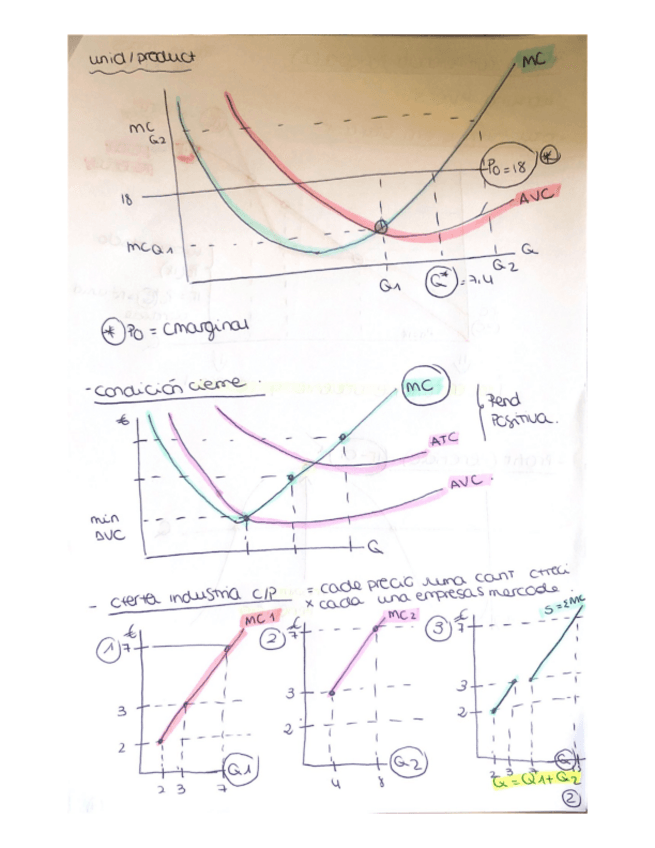 unid/product
MC
MC
Q2
P0=18 *
18
AVC
MCQ1
Q
Q1
Q* = 7.4
Q2
* P0 = Cmarginal
- condición cierre
MC
€
Pend
Positiva.
ATC
AVC.
min
AVC
Q
- oferta industria C/P = cada precio una cant
x cada una empresas mercado
MC1
MC2
S=ΣMC
1 € 7
2 € 7
3 € 7
3
3
3
2
2
2
Q1
Q2
Q
2 3 7
4 8
2 3
Q=Q1+Q2
2